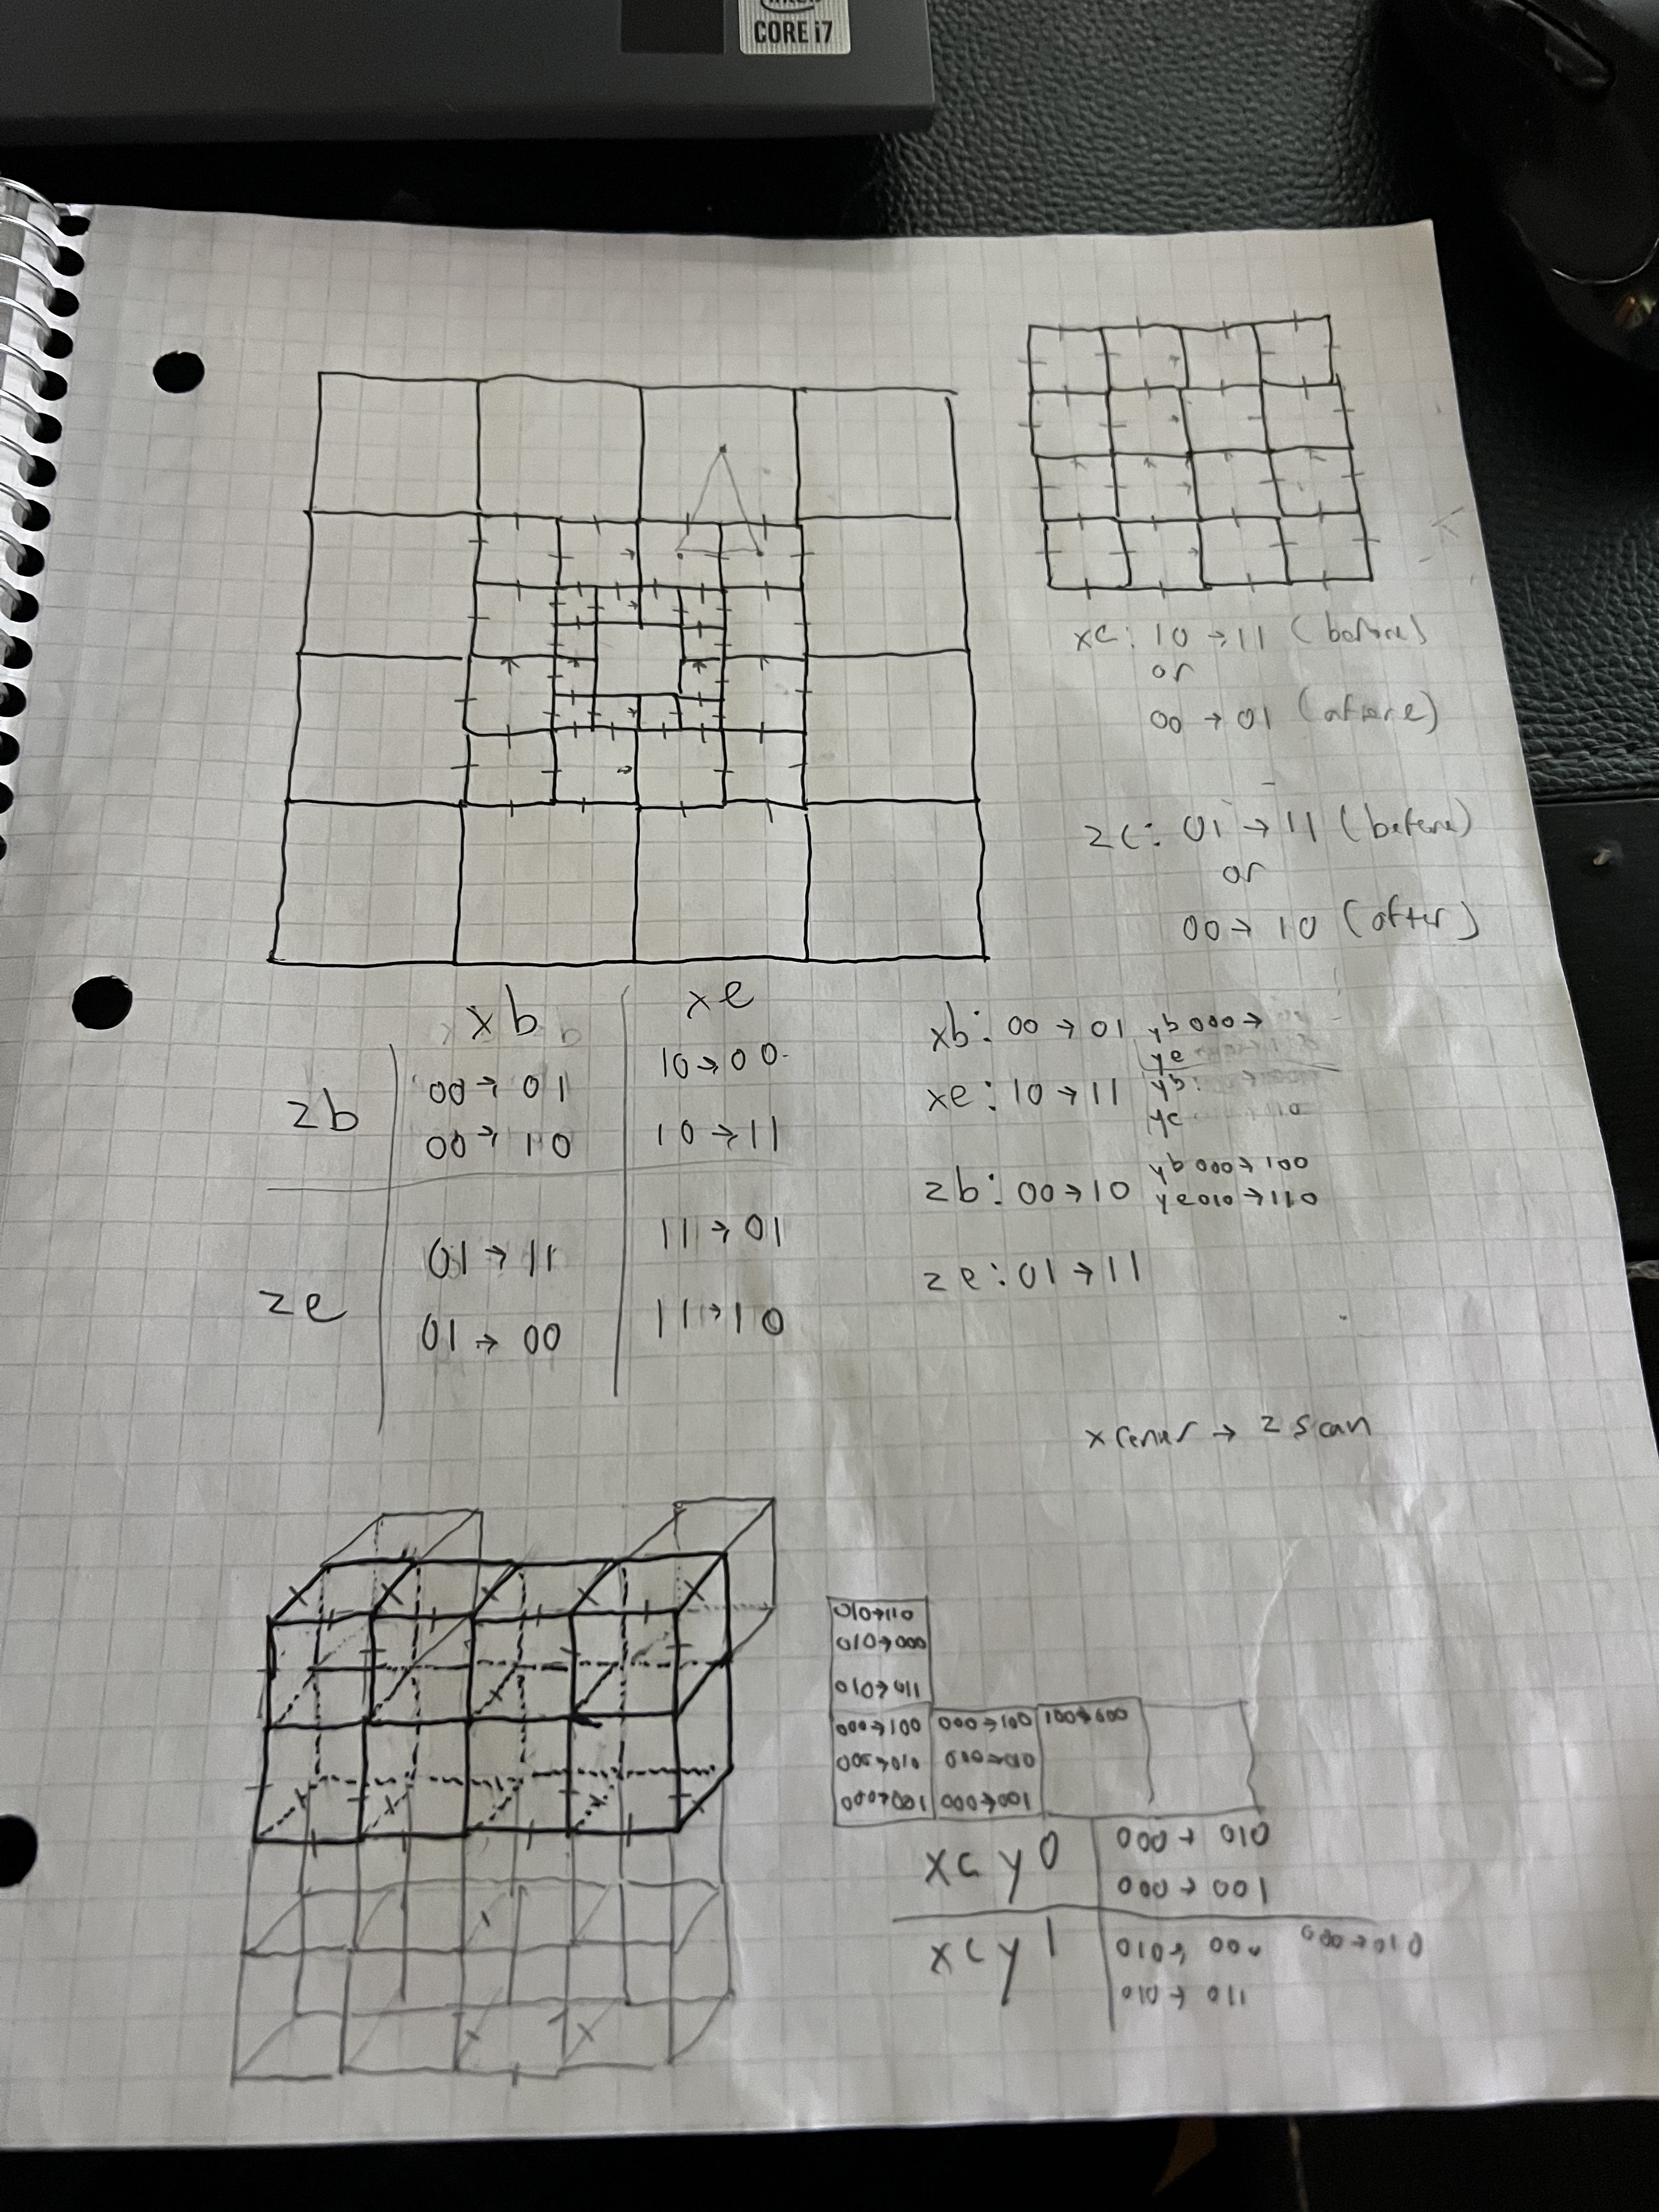 CORE i7
xc: 10 → 11 (before)
or
00 → 01 (afore)
zc: 01 → 11 (before)
or
00 → 10 (after)
xb
xe
zb
00 → 01
00 → 10
10 → 00
10 → 11
ze
01 → 11
01 → 00
11 → 01
11 → 10
xb: 00 → 01 yb 000 →
ye
xe: 10 → 11 yb:
ye
zb: 00 → 10 yb 000 → 100
ye 010 → 110
ze: 01 → 11
x center → z scan
010→110
010→000
010→011
000→100 000→100 000→001
000→010 000→010
000→001 000→001
xcy0
000 → 010
000 → 001
xcy1
010 → 000 000→010
010 → 011